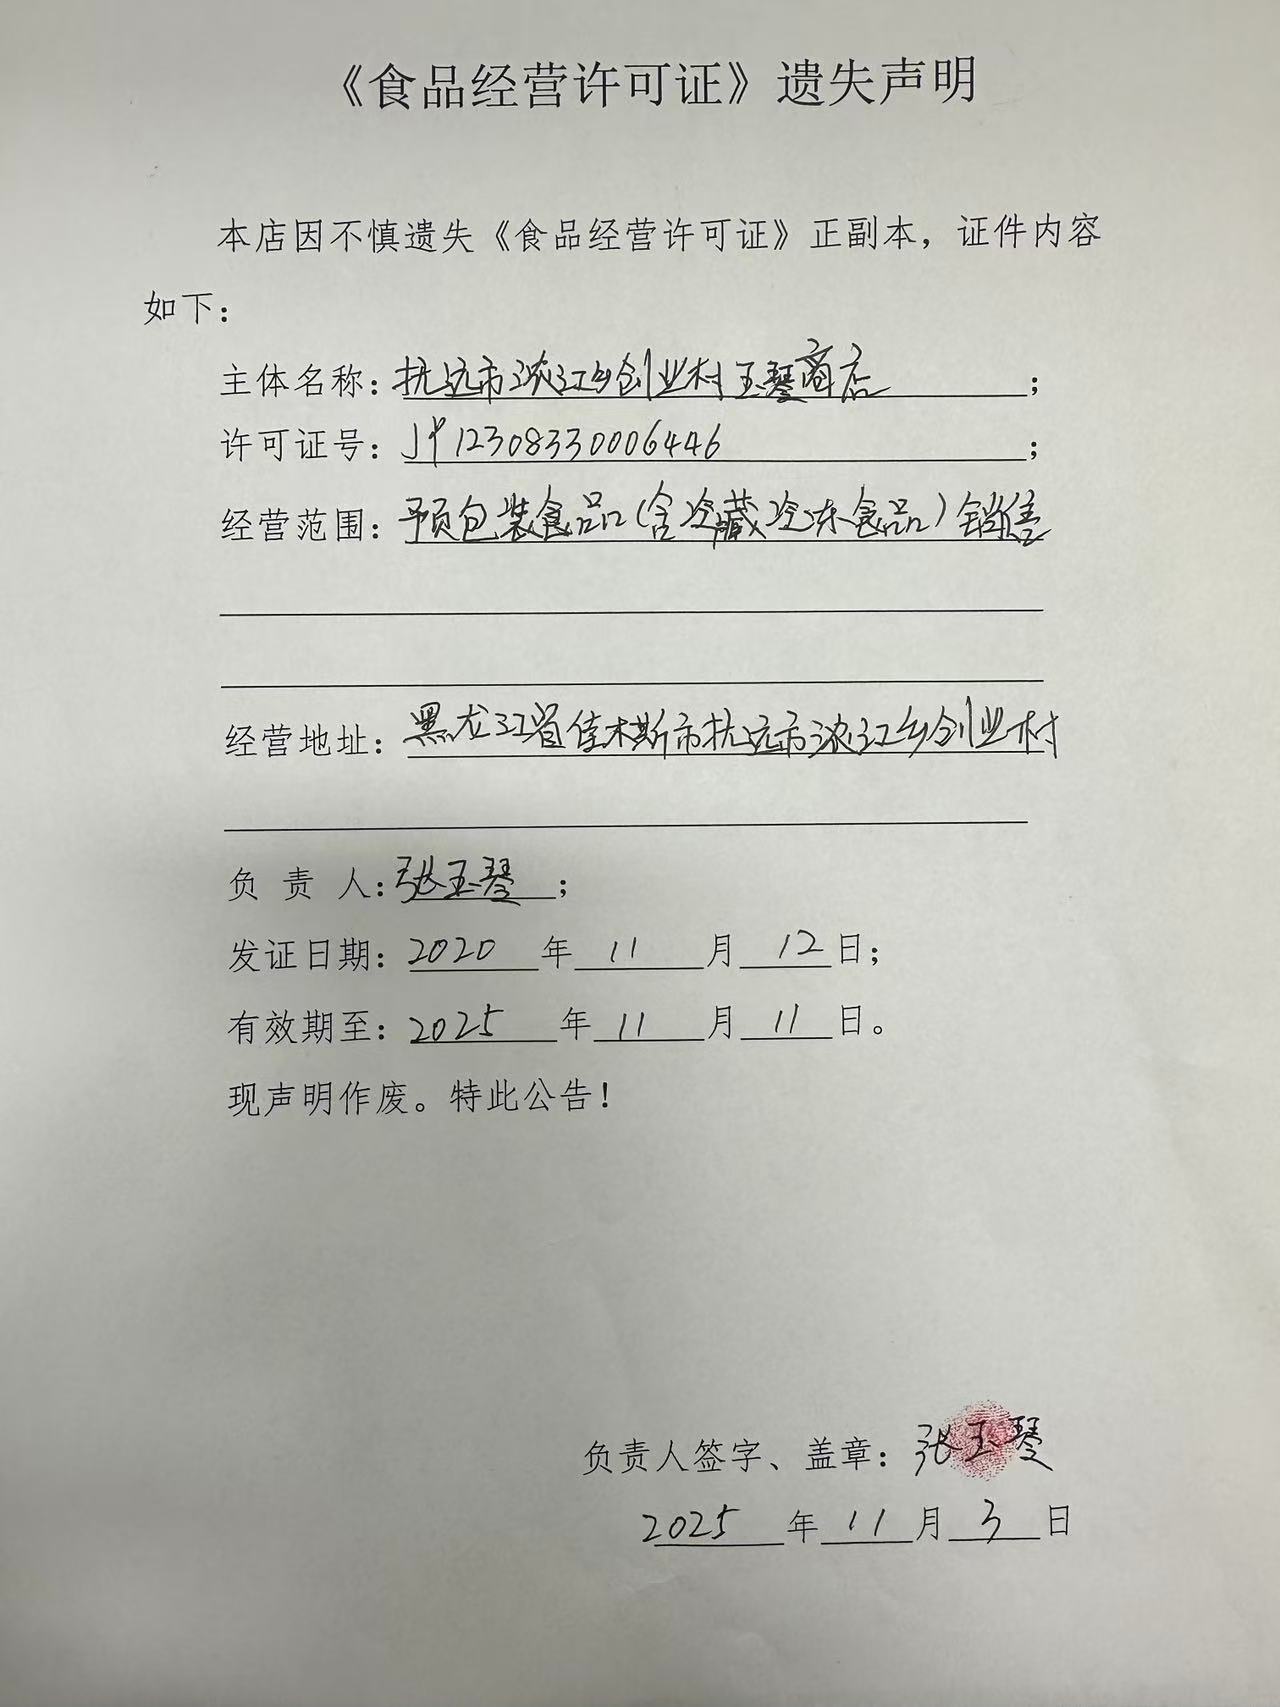 《食品经营许可证》遗失声明
本店因不慎遗失《食品经营许可证》正副本，证件内容
如下：
主体名称：抚远市浓江乡创业村玉琴商店；
许可证号：JY12308330006446；
经营范围：预包装食品（含冷藏冷冻食品）销售
经营地址：黑龙江省佳木斯市抚远市浓江乡创业村
负 责 人：张玉琴；
发证日期：2020年11月12日；
有效期至：2025年11月11日。
现声明作废。特此公告！
负责人签字、盖章：张玉琴
2025年11月3日